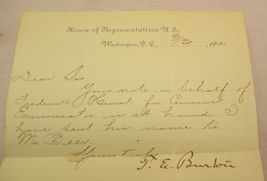 House of Representatives U.S.
Washington, D.C., 189
Dear Sir,
Your note in behalf of
Frederick Hurst for Census
Enumerator is at hand I
have sent his name to
Mr Bell.
Yours truly
T. E. Burton